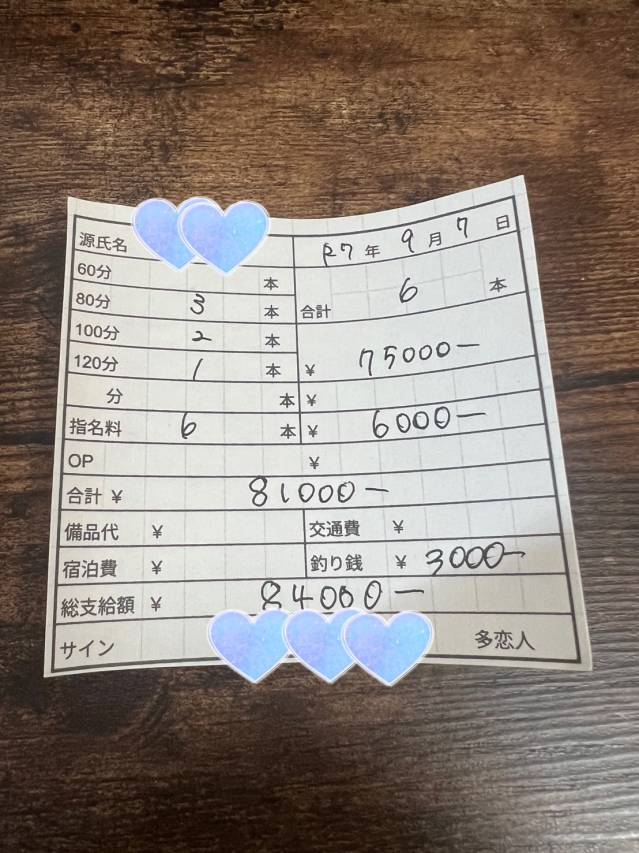 源氏名 R7年9月7日
60分 本
80分 3 本 合計 6 本
100分 2 本
120分 1 本 ¥ 75000-
分 本 ¥
指名料 6 本 ¥ 6000-
OP ¥
合計 ¥ 81000-
備品代 ¥ 交通費 ¥
宿泊費 ¥ 釣り銭 ¥ 3000-
総支給額 ¥ 84000-
サイン 多恋人